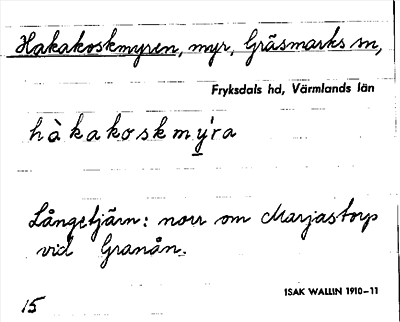 Hakakoskmyren, myr, Gräsmarks sn,
Fryksdals hd, Värmlands län
hàkakoskmy̲ra
Långetjärn: norr om Marjastorp
vid Granån.
ISAK WALLIN 1910-11
15